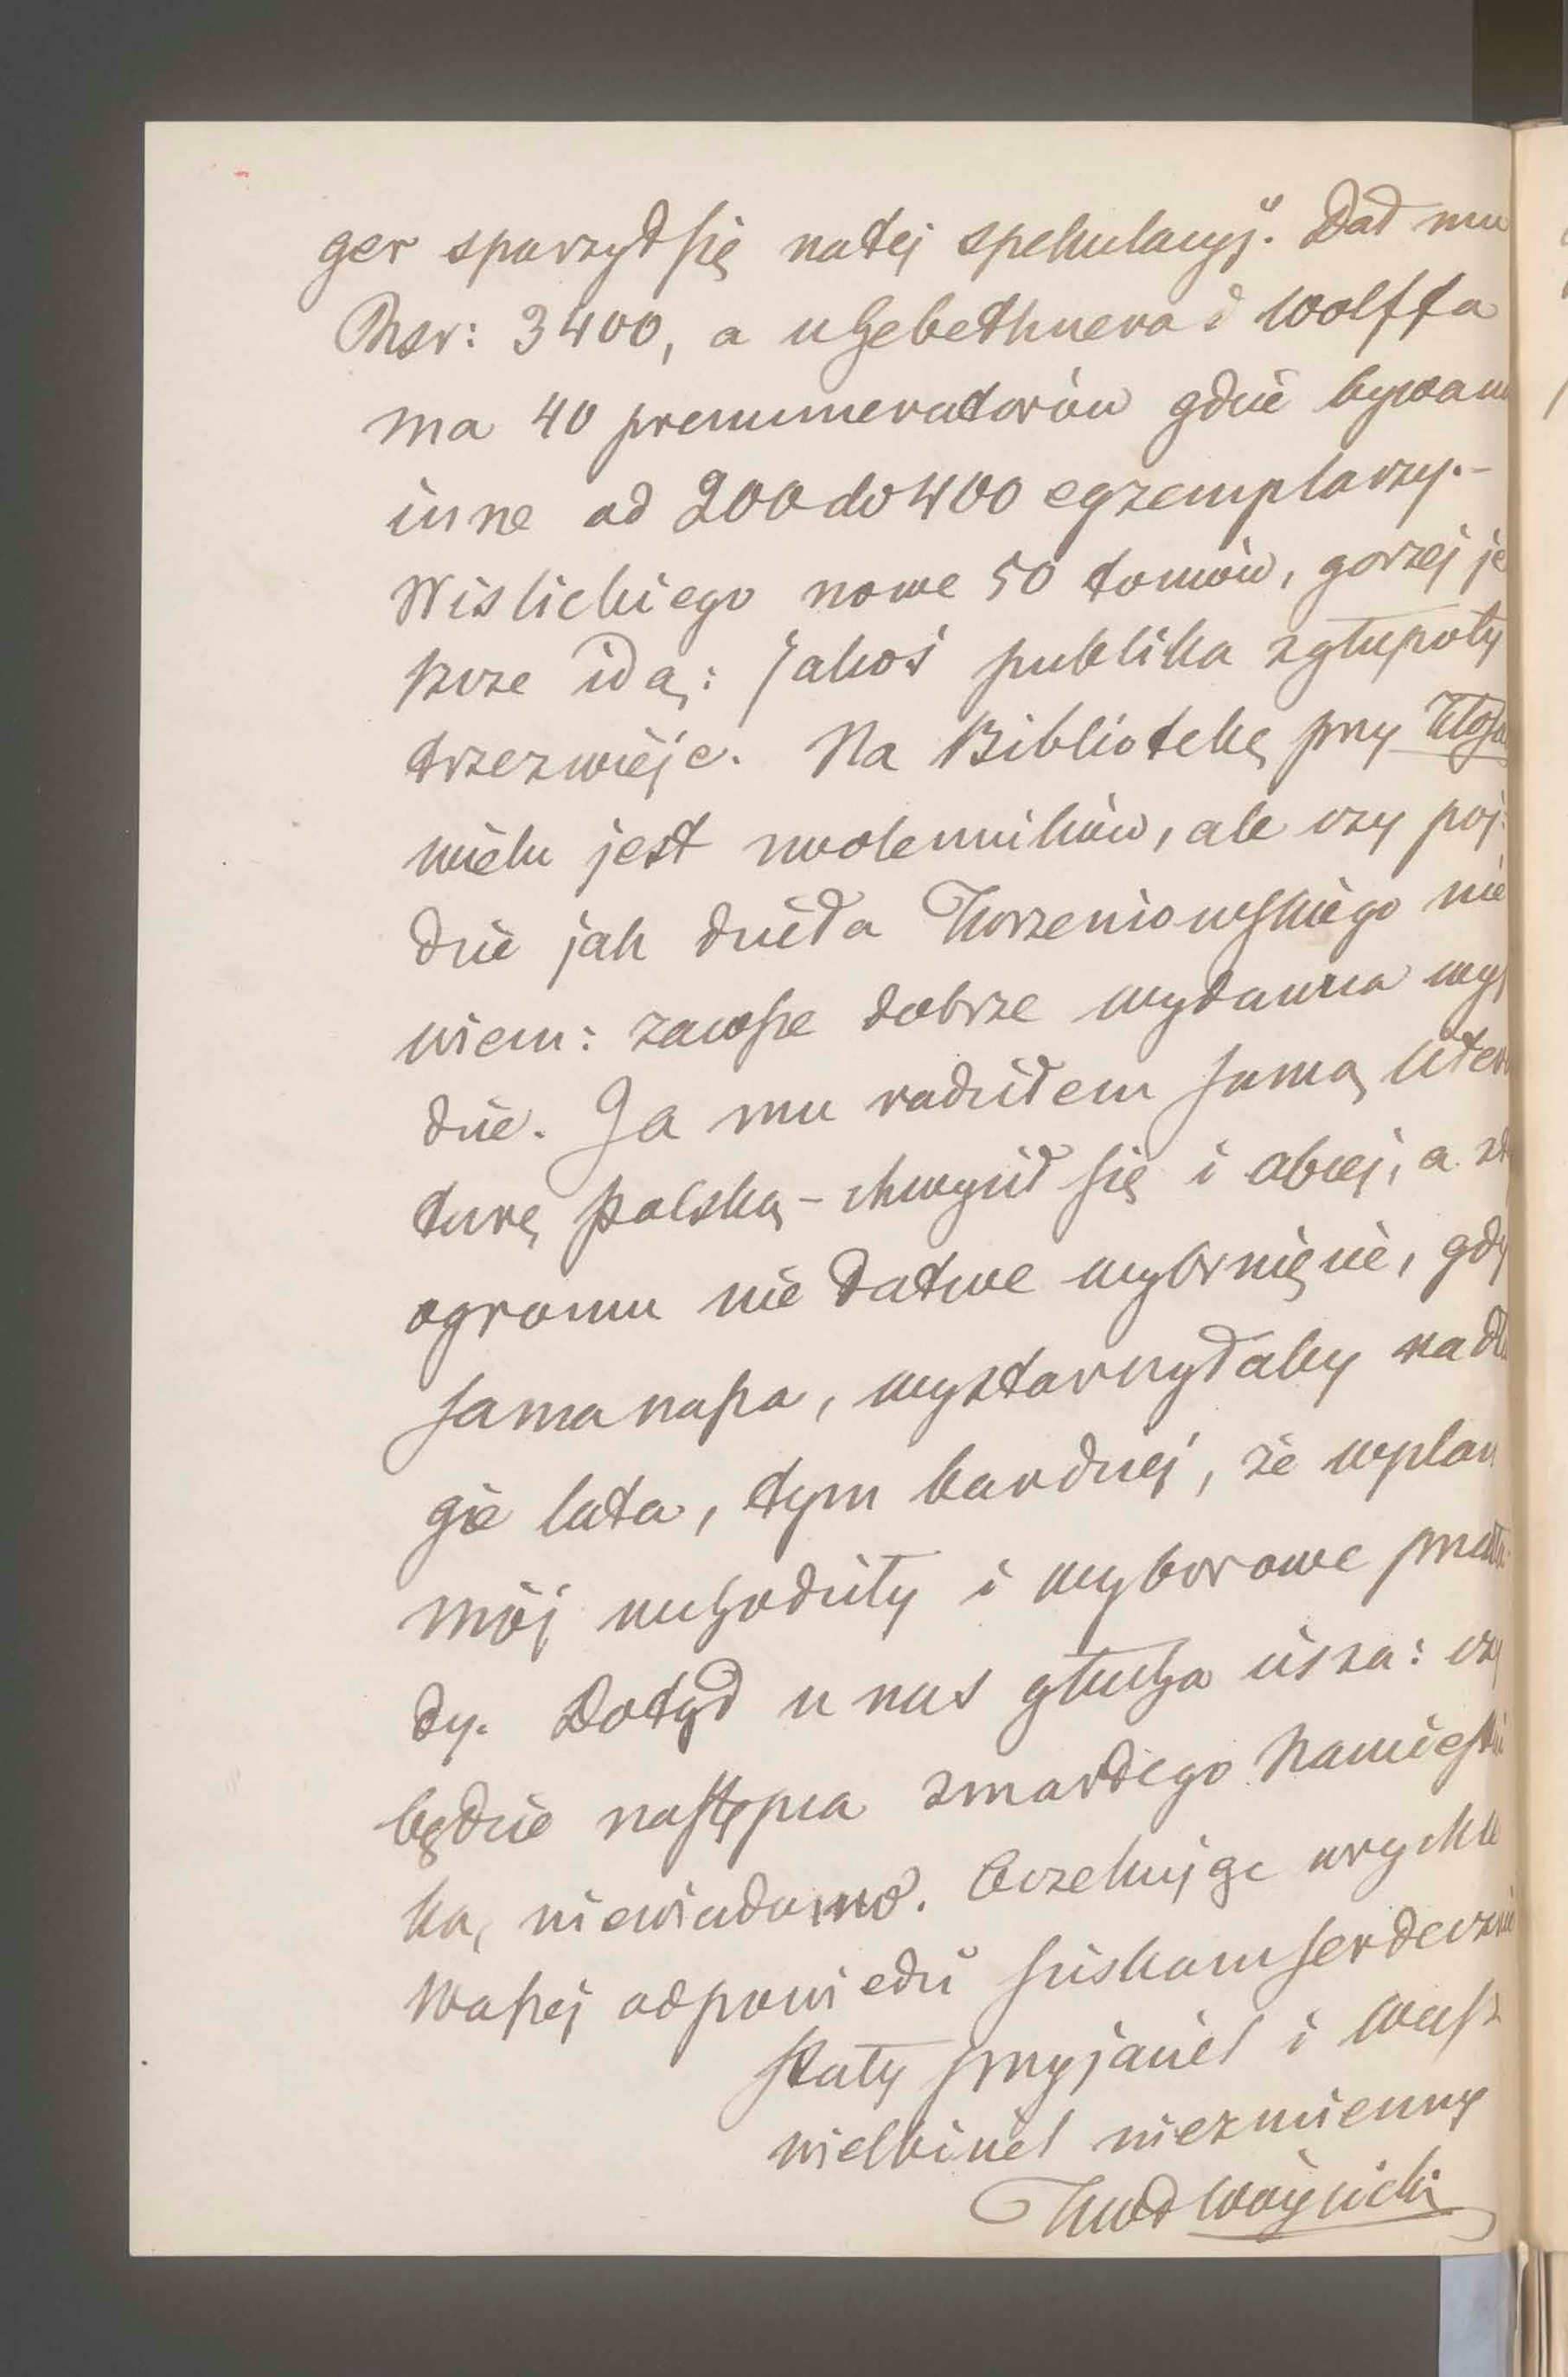 ger sparzył się na tej spekulacyj. Dał mu
Rsr: 3400, a u Gebethnera i Wolffa
ma 40 prenumeratorów gdzie bywam
inne od 200 do 400 egzemplarzy.-
Wislickiego nowe 50 tomów, gorzej je
szcze idą: Jakoś publika z głupoty
trzezwieje. Na Bibliotekę przy Kłosa
wielu jest zwolenników, ale czy pój-
dzie jak dzieła Korzeniowskiego nie
wiem: zawsze dobrze wydawca wyj
dzie. Ja mu radziłem samą litera
turę polską - chwycił się i obcej, a z
ogromu nie łatwe wybrnięcie, gdy
sama nasza, wystarczyłaby na dłu
gie lata, tym bardziej, że w plan
mój wchodziły i wyborowe przekła
dy. Dotąd u nas głucha cisza: czy
będzie następca zmarłego Namiestni
ka, niewiadomo. Oczekując rychłe
Waszej odpowiedzi ściskam serdecznie
stały przyjaciel i Wasz
wielbiciel niezmienny
KWład Wójcicki